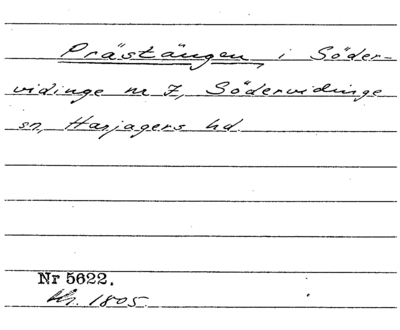 Prästängen, i Söder-
vidinge m 7, Södervidinge
sn, Harjagers hd.
Nr 5622.
1805.